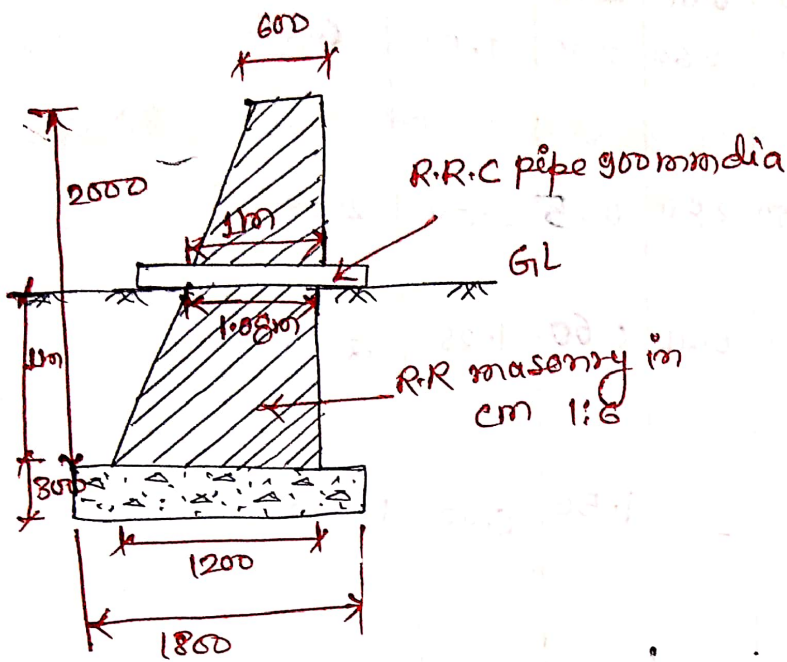 600
2000
R.R.C pipe 900mm dia
1m
GL
1.08m
1m
R.R masonry in
cm 1:6
300
1200
1800